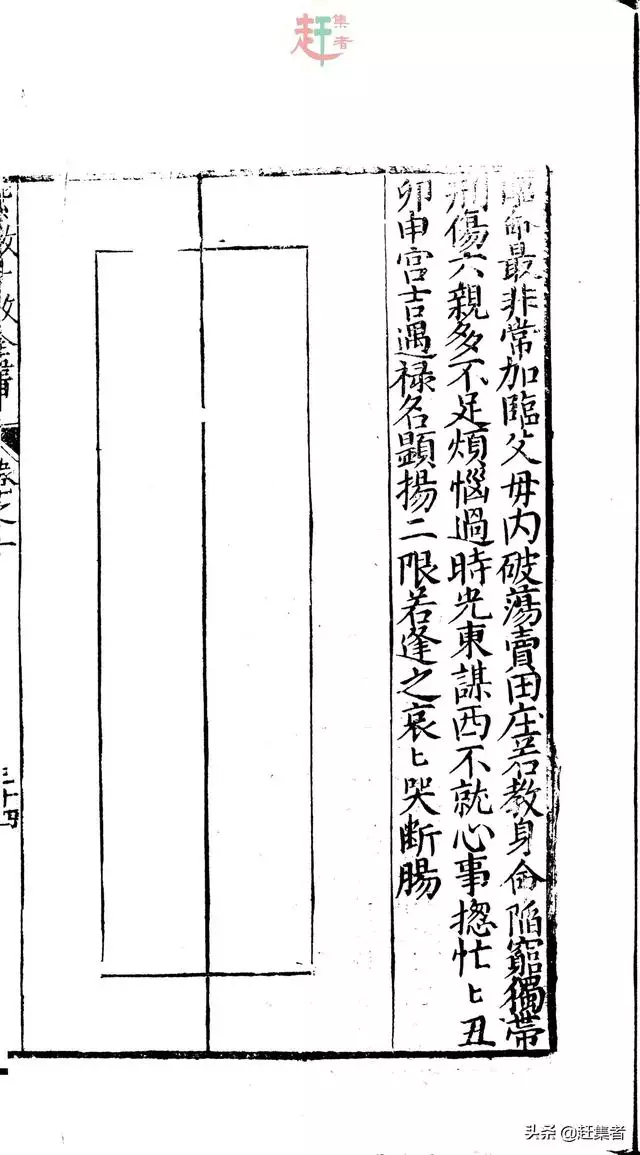 赶集者
命最非常加臨父母内破蕩賣田庄若教身命陷窮獨帶
刑傷六親多不足煩惱過時光東謀西不就心事揔忙ヒ丑
卯申宮吉遇禄名顕揚二限若逢之哀ヒ哭断腸
全書
卷之一
三十四
头条 @赶集者